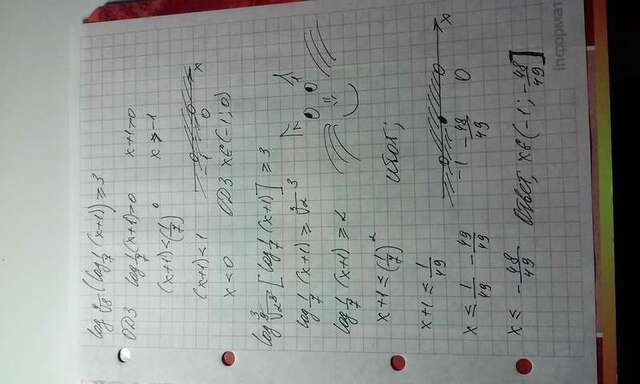 log ⁹√8 (log 1/7 (x+1)) ≥ 3
ОДЗ log 1/7 (x+1) > 0 x+1 > 0
(x+1) < (1/7)⁰ x > -1
(x+1) < 1 -1 0 x
x < 0 ОДЗ x∈(-1; 0)
log ⁹√2³ [log 1/7 (x+1)] ≥ 3
log 1/7 (x+1) ≥ ³√2³
log 1/7 (x+1) ≥ 2
x+1 ≤ (1/7)² итог;
x+1 ≤ 1/49
x ≤ 1/49 - 49/49 -1 -48/49 0 x
x ≤ -48/49 Ответ, x∈(-1; -48/49]